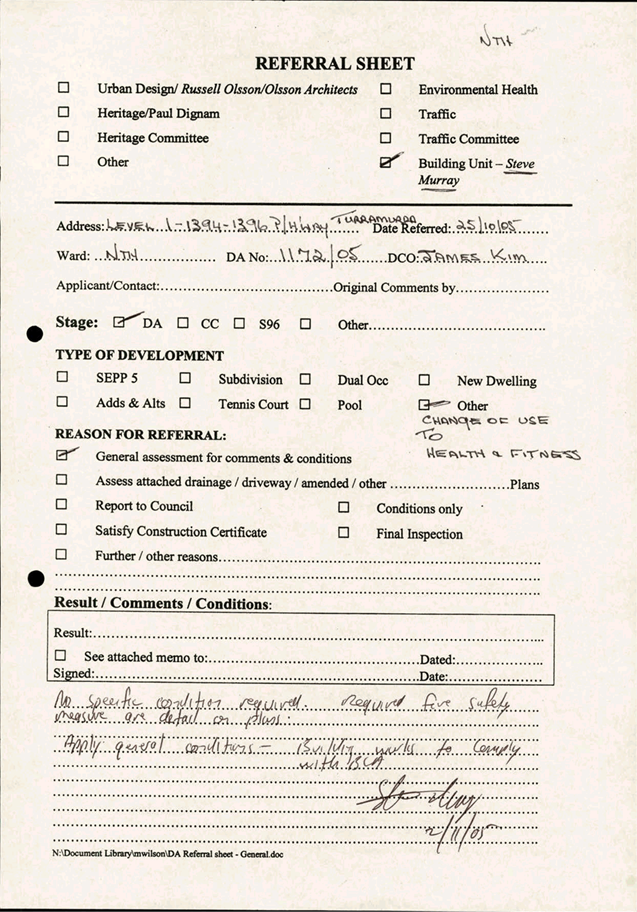 NTH
REFERRAL SHEET
☐ Urban Design/ Russell Olsson/Olsson Architects ☐ Environmental Health
☐ Heritage/Paul Dignam ☐ Traffic
☐ Heritage Committee ☐ Traffic Committee
☐ Other ☑ Building Unit – Steve
Murray
Address: LEVEL 1-1394-1396 P/HWAY TURRAMURRA Date Referred: 25/10/05
Ward: NTH DA No: 1172/05 DCO: JAMES KIM
Applicant/Contact: Original Comments by
Stage: ☑ DA ☐ CC ☐ S96 ☐ Other
TYPE OF DEVELOPMENT
☐ SEPP 5 ☐ Subdivision ☐ Dual Occ ☐ New Dwelling
☐ Adds & Alts ☐ Tennis Court ☐ Pool ☑ Other
CHANGE OF USE
TO
HEALTH & FITNESS
REASON FOR REFERRAL:
☑ General assessment for comments & conditions
☐ Assess attached drainage / driveway / amended / other Plans
☐ Report to Council ☐ Conditions only
☐ Satisfy Construction Certificate ☐ Final Inspection
☐ Further / other reasons
Result / Comments / Conditions:
Result:
☐ See attached memo to: Dated:
Signed: Date:
No specific condition required. Required fire safety
measure are detail on plans.
Apply general conditions – Building works to comply
with BCA
2/11/05
N:\Document Library\mwilson\DA Referral sheet - General.doc